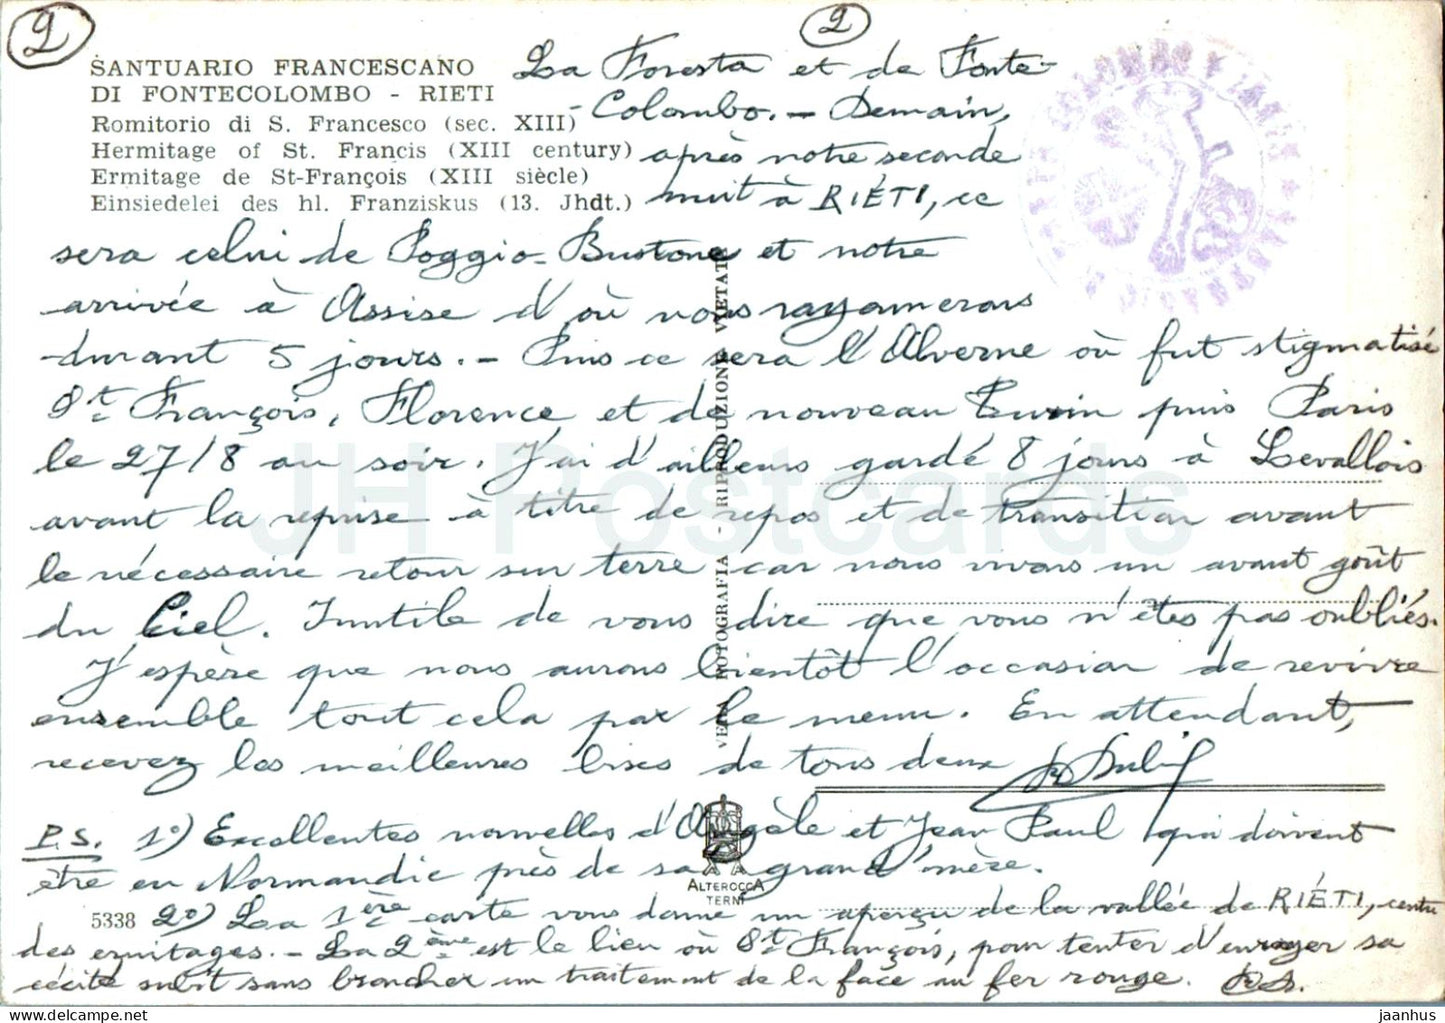 2
2
SANTUARIO FRANCESCANO
DI FONTECOLOMBO - RIETI
Romitorio di S. Francesco (sec. XIII)
Hermitage of St. Francis (XIII century)
Ermitage de St-François (XIII siècle)
Einsiedelei des hl. Franziskus (13. Jhdt.)
La Foresta et de Fonte-
-Colombo. - Demain,
après notre seconde
nuit à RIÉTI, ce
sera celui de Poggio-Bustone et notre
arrivée à Assise d'où nous rayonnerons
durant 5 jours. - Puis ce sera l'Alverne où fut stigmatisé
St François, Florence et de nouveau Turin puis Paris
le 27/8 au soir. J'ai d'ailleurs gardé 8 jours à Levallois
avant la reprise à titre de repos et de transition avant
le nécessaire retour sur terre car nous vivons un avant goût
du Ciel. Inutile de vous dire que vous n'êtes pas oubliés.
J'espère que nous aurons bientôt l'occasion de revivre
ensemble tout cela par le menu. En attendant,
recevez les meilleures bises de tous deux
P.S. 1°) Excellentes nouvelles d'Angèle et Jean Paul qui doivent
être en Normandie près de sa grand'mère.
5338 2°) La 1ère carte vous donne un aperçu de la vallée de RIÉTI, centre
des ermitages. - La 2ème est le lieu où St François, pour tenter d'enrayer sa
cécité subit sans broncher un traitement de la face au fer rouge.
VERA FOTOGRAFIA - RIPRODUZIONE VIETATA
ALTEROCCA
TERNI
JH Postcards
jaanhus